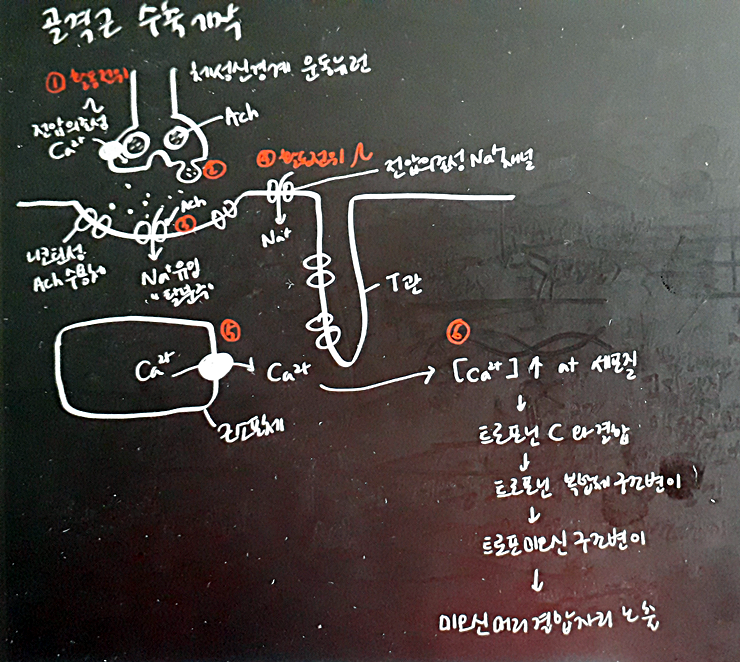 골격근 수축기작
① 활동전위
체성신경계 운동뉴런
전압의존성
Ca²⁺
Ach
②
④ 활동전위
전압의존성 Na⁺ 채널
Ach
③
Na⁺
니코틴성
Ach 수용체
Na⁺ 유입
"탈분극"
T관
⑤
Ca²⁺
Ca²⁺
근소포체
⑥
[Ca²⁺] ↑ at 세포질
↓
트로포닌 C 와 결합
↓
트로포닌 복합체 구조변이
↓
트로포미오신 구조변이
↓
미오신머리 결합자리 노출